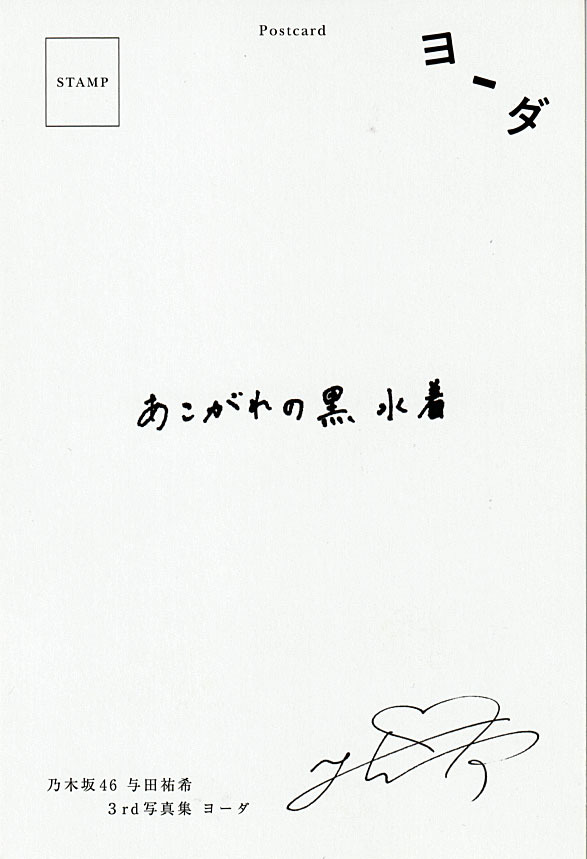 Postcard
STAMP
ヨーダ
あこがれの黒 水着
乃木坂46 与田祐希
3rd写真集 ヨーダ